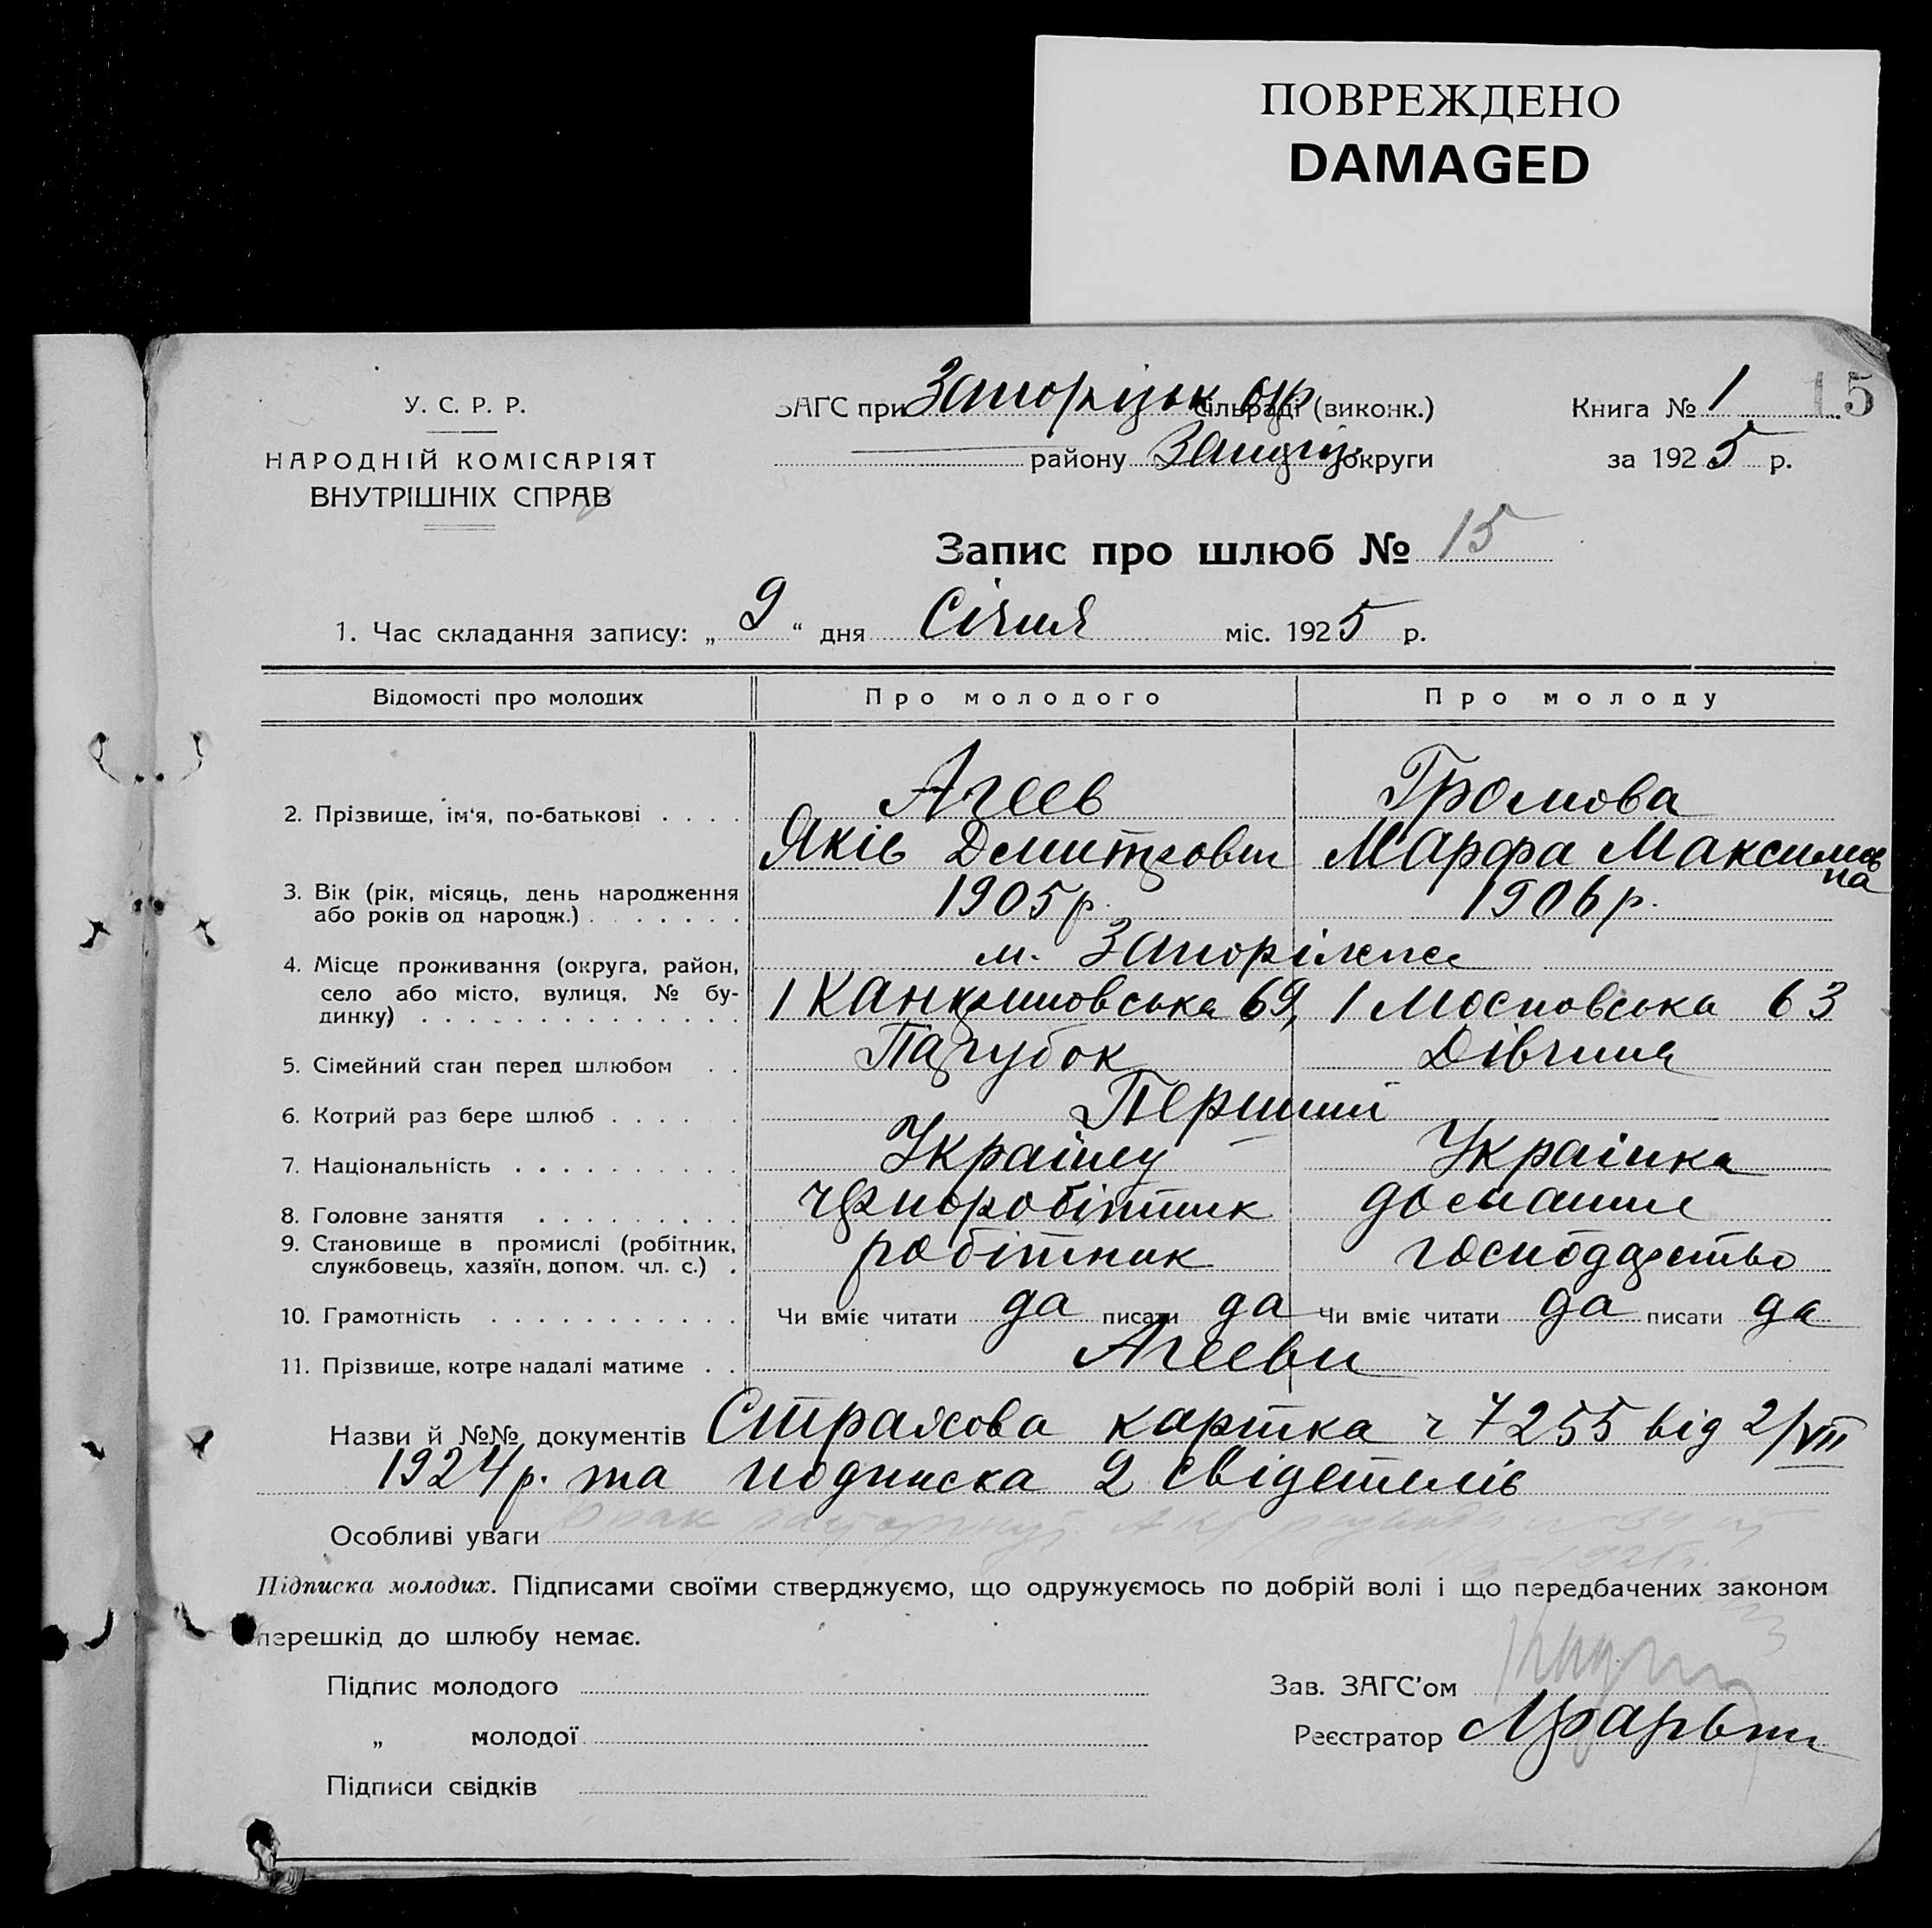 ПОВРЕЖДЕНО
DAMAGED
У. С. Р. Р.
НАРОДНІЙ КОМІСАРІЯТ
ВНУТРІШНІХ СПРАВ
ЗАГС при Запорізьк окр сільраді (виконк.)
району Запоріз округи
Книга № 1
15
за 1925 р.
Запис про шлюб № 15
1. Час складання запису: „ 9 “ дня Січня міс. 1925 р.
Відомості про молодих Про молодого Про молоду
2. Прізвище, ім'я, по-батькові . . . . Агеев Громова
Яків Дмитрович Марфа Максимовна
3. Вік (рік, місяць, день народження або років од народж.) . . . . . . . 1905 р. 1906 р.
4. Місце проживання (округа, район, м. Запоріжже
село або місто, вулиця, № бу-
динку) . . . . . . . . . . . . . . 69, 1 Московська 63
5. Сімейний стан перед шлюбом . . Парубок Дівчина
6. Котрий раз бере шлюб . . . . . Перший
7. Національність . . . . . . . . . . Українец Українка
8. Головне заняття . . . . . . . . . чорноробітник домашнє
9. Становище в промислі (робітник, службовець, хазяїн, допом. чл. с.) . робітник господарство
10. Грамотність . . . . . . . . . . . Чи вміє читати да писати да Чи вміє читати да писати да
11. Прізвище, котре надалі матиме . . Агееви
Назви й №№ документів Страхова картка ч 7255 від 2/VII
1924 р. та подписка 2 свідетелів
Особливі уваги Брак расторгнут. Акт
Підписка молодих. Підписами своїми стверджуємо, що одружуємось по добрій волі і що передбачених законом
перешкід до шлюбу немає.
Підпис молодого
Зав. ЗАГС'ом
„ молодої
Реєстратор
Підписи свідків